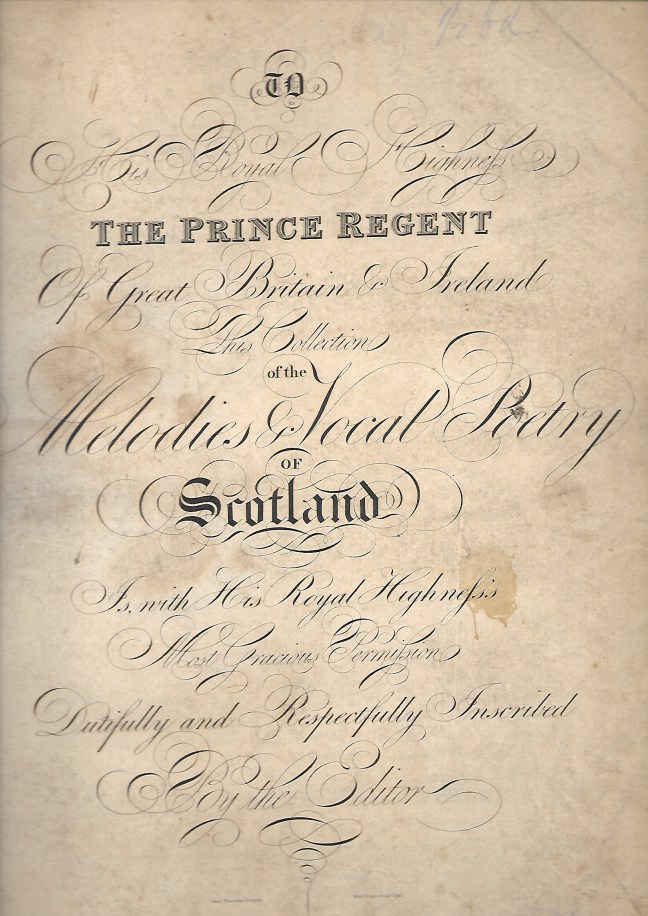 TO
His Royal Highneſs
THE PRINCE REGENT
Of Great Britain & Ireland
This Collection
of the
Melodies & Vocal Poetry
OF
Scotland
Is, with His Royal Highneſs's
Most Gracious Permiſsion
Dutifully and Respectfully Inscribed
By the Editor